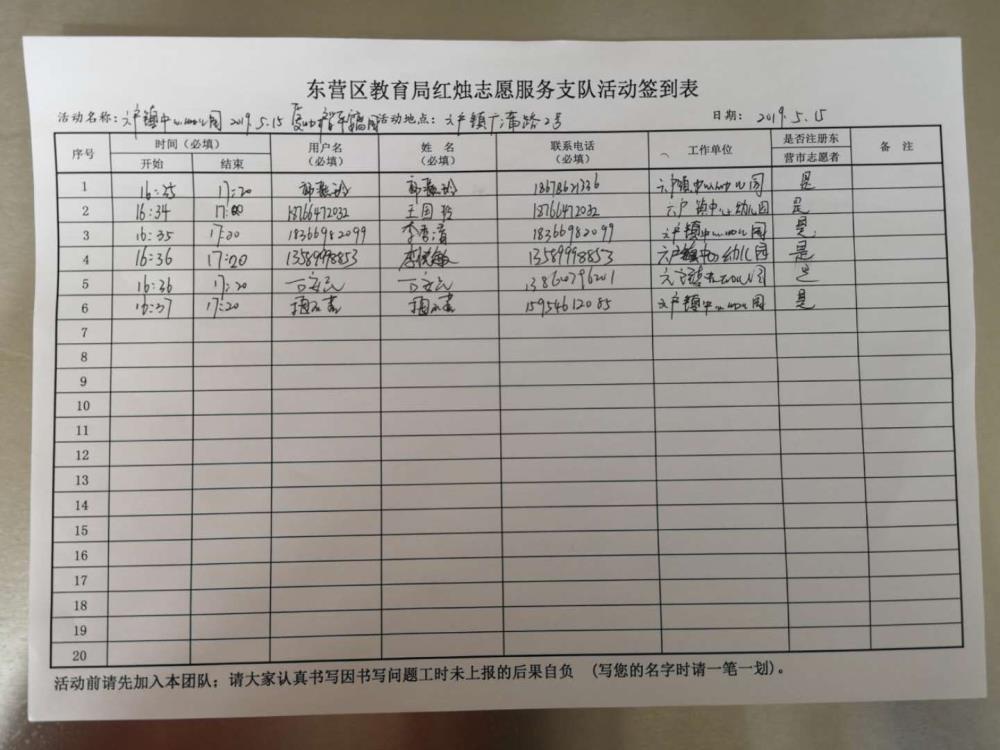 东营区教育局红烛志愿服务支队活动签到表
活动名称：六户镇中心幼儿园 2019.5.15 活动地点：六户镇广蒲路2号 日期：2019.5.15
序号 时间（必填） 用户名（必填） 姓名（必填） 联系电话（必填） 工作单位 是否注册东营市志愿者 备注
开始 结束
1 16:25 17:20 18678621336 六户镇中心幼儿园 是
2 16:34 17:00 18766472032 王国玲 18766472032 六户镇中心幼儿园 是
3 16:35 17:20 18366982099 李秀清 18366982099 六户镇中心幼儿园 是
4 16:36 17:20 13589998853 13589998853 六户镇中心幼儿园 是
5 16:36 17:20 是
6 16:37 17:20 15954612085 六户镇中心幼儿园 是
7
8
9
10
11
12
13
14
15
16
17
18
19
20
活动前请先加入本团队；请大家认真书写因书写问题工时未上报的后果自负 （写您的名字时请一笔一划）。